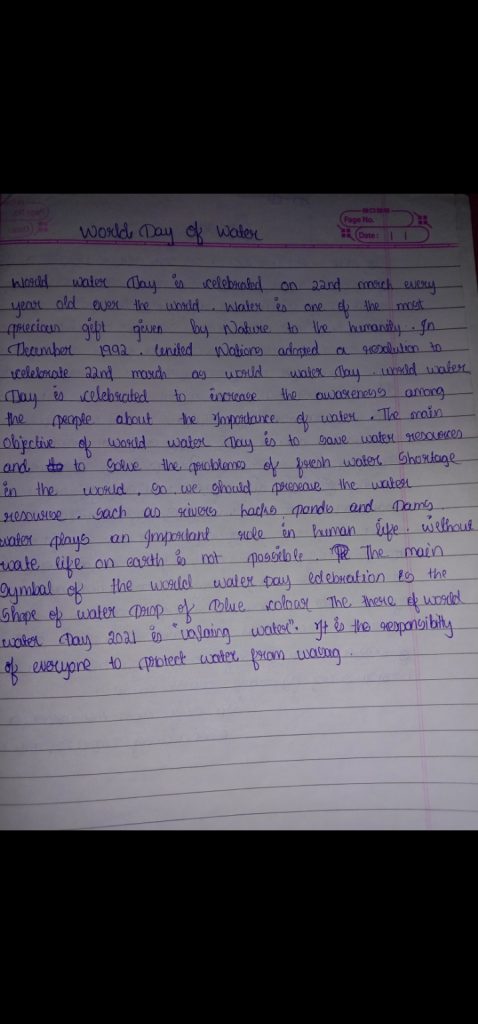 Page No.
Date:
World Day of Water
World water Day is celebrated on 22nd march every
year old over the world. Water is one of the most
precious gift given by Nature to the humanity. In
December 1992. United Nations adopted a resolution to
celebrate 22nd march as world water Day. world water
Day is celebrated to increase the awareness among
the people about the Importance of water. The main
Objective of world water Day is to save water resources
and to solve the problems of fresh water shortage
in the world. so we should preseave the water
resourse. Sach as rivers ponds and Dams.
water plays an Important role in human life. without
wate life on earth is not possible. The main
Symbol of the world water Day celebration is the
Shape of water Drop of Blue colour The there of world
water Day 2021 is "valaing water". It is the responsibity
of everyone to protect water from